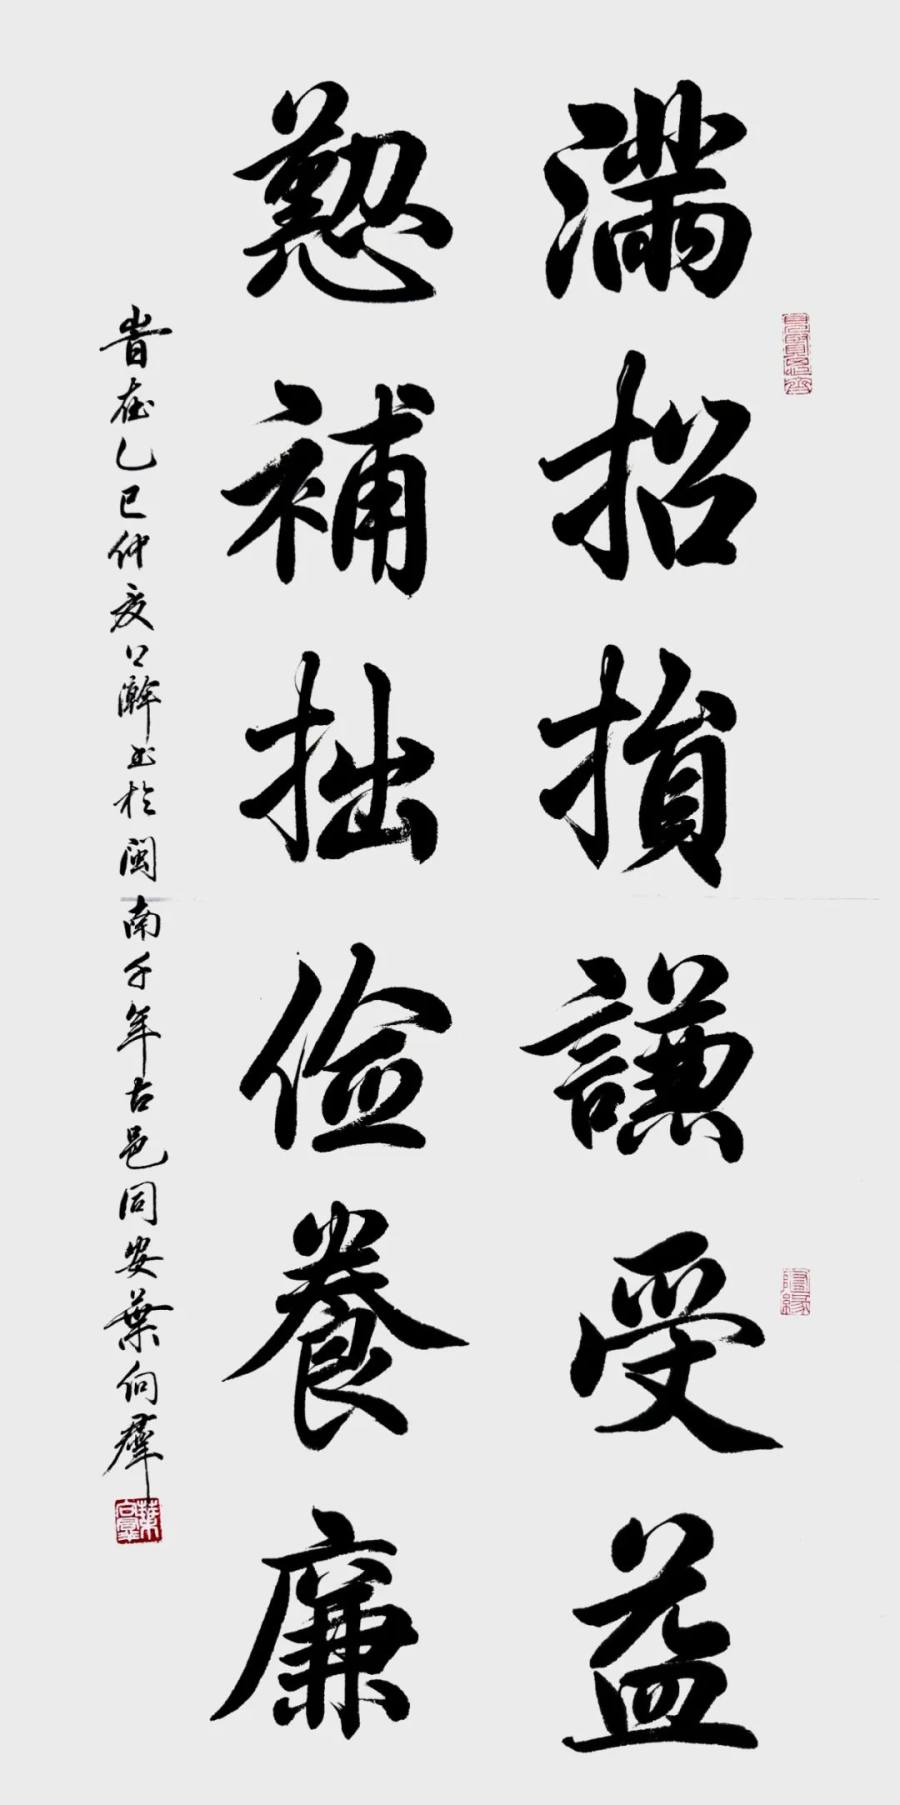 滿招損謙受益
懃補拙儉養廉
昔在乙巳仲夏上澣書於閩南千年古邑同安葉向羣